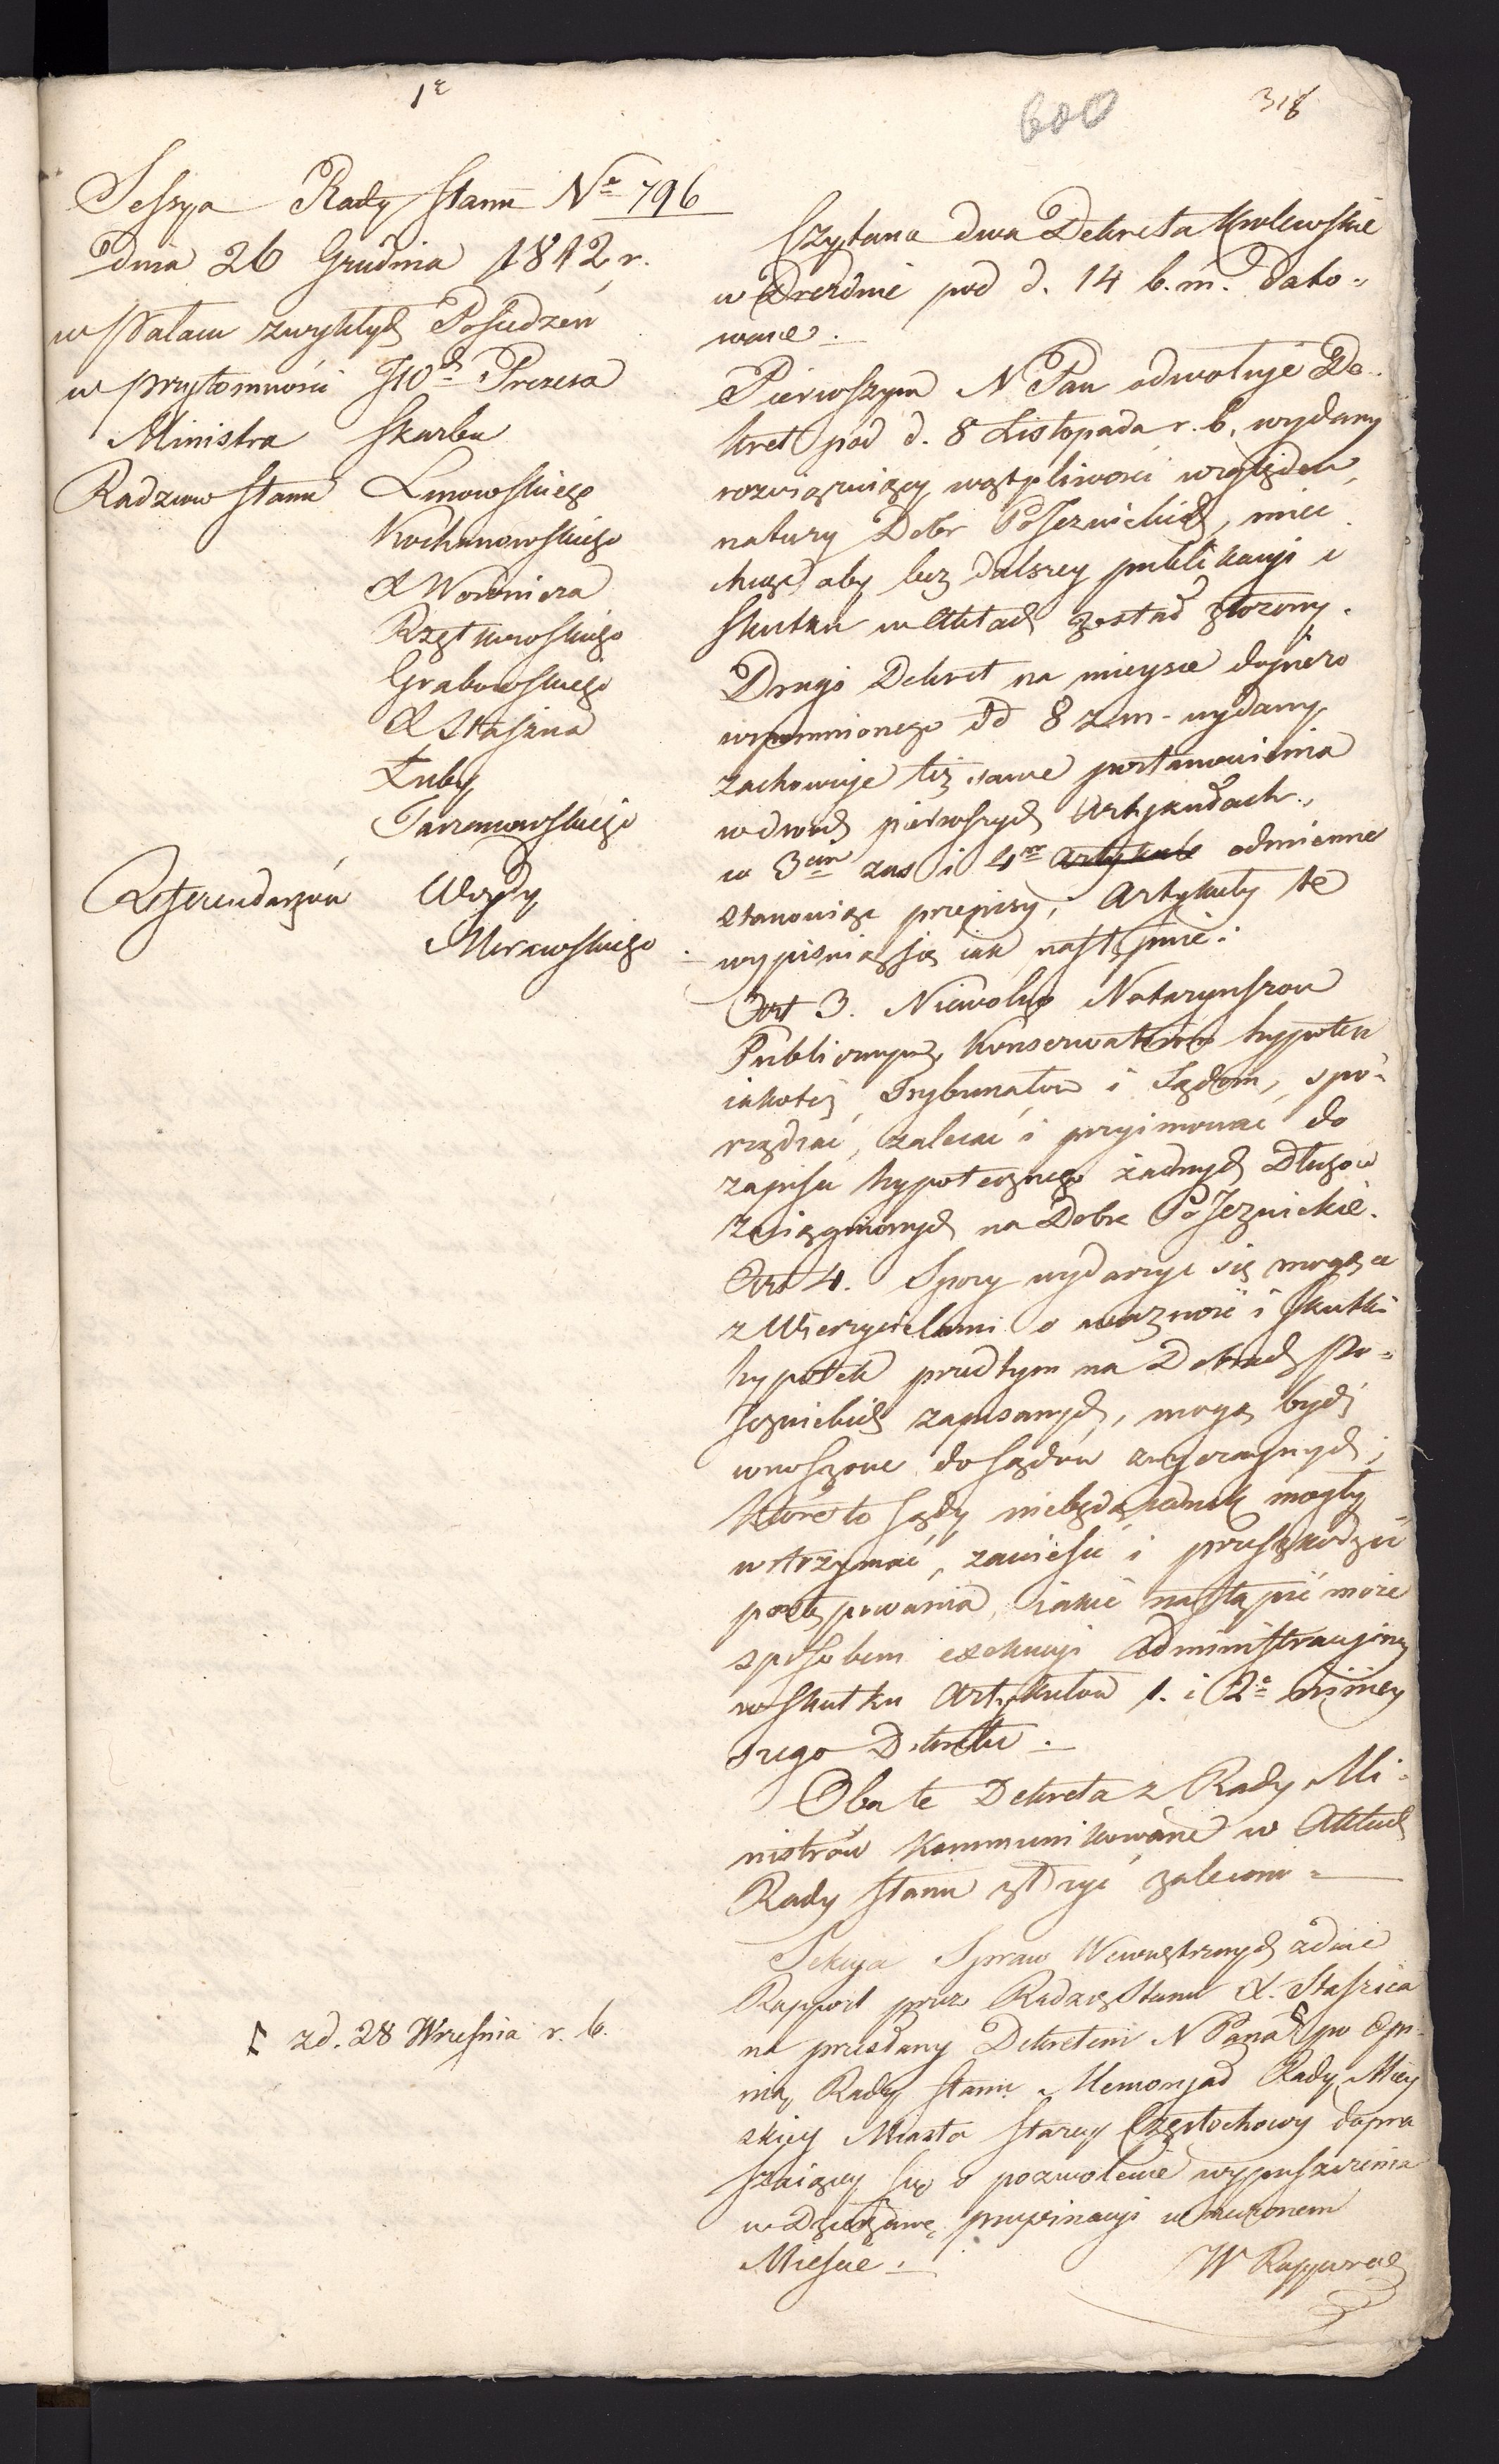 1e
600
318
Sessya Rady Stanu No 796
Dnia 26 Grudnia 1812 r.
w Pałacu zwykłych Posiedzeń
w przytomności JWch Prezesa
Ministra Skarbu
Radzców Stanu Linowskiego
Kochanowskiego
X Woronicza
Rzętkowskiego
Grabowskiego
X Staszica
Łuby
Tarzanowskiego
Referendarzów Wozdy
Morawskiego
Czytane dwa Dekreta Krolewskie
w Dreźnie pod d. 14 b.m. Dato-
wane.
Pierwszym N Pan odwołuje De-
kret pod d. 8 Listopada r. b. wydany
rozwiązuiący wątpliwości względem
natury Dobr PoJezuickich, miec
chcąc aby bez dalszey publikacyi i
skutku w Aktach został złożony.
Drugi Dekret na mieysce dopiero
wspomnionego dd 8 z.m. wydany
zachowuje też same postanowienia
w dwoch pierwszych Artykułach,
w 3cim zas i 4m artykule odmienne
stanowiąc przepisy, Artykuły te
wypisuią się iak następnie:
Art 3. Niewolno Notaryuszom
Publicznym, Konserwatorom hypotek
iakoteż Trybunałom i Sądom, spo-
rządzać, zalecać i przyimować do
zapisu hypotecznego żadnych Długów
zaciągnionych na Dobra PoJezuickie.
Art 4. Spory wydarzyc się mogące
z Wierzycielami o ważność i skutki
hypotek przedtym na Dobrach Po-
Jezuickich zapisanych, mogą bydź
wnoszone do Sądów zwyczaynych;
które to Sądy niebędą iednak mogły
wstrzymać, zawiesić i przeszkodzić
postępowania, iakie nastąpić może
sposobem exekucyi Administracyiney
w skutku Artykułów 1. i 2o niniey
szego Dekretu.
Oba te Dekreta z Rady Mi-
nistrów kommunikowane w Aktach
Rady Stanu złożyć zalecono
Sekcya Spraw Wewnętrznych zdaie
Rapport przez Radzcę Stanu X. Staszica
na przesłany Dekretem N Pana Γ po Opi-
nią Rady Stanu Memoryał Rady Miey
skiey Miasta Starey Częstochowy dopra
szaiącey się o pozwolenie wypuszczenia
w Dzierżawę propinacyi w rzeczonem
Mieście.
W Rapporcie
Γ z d. 28 Września r. b.